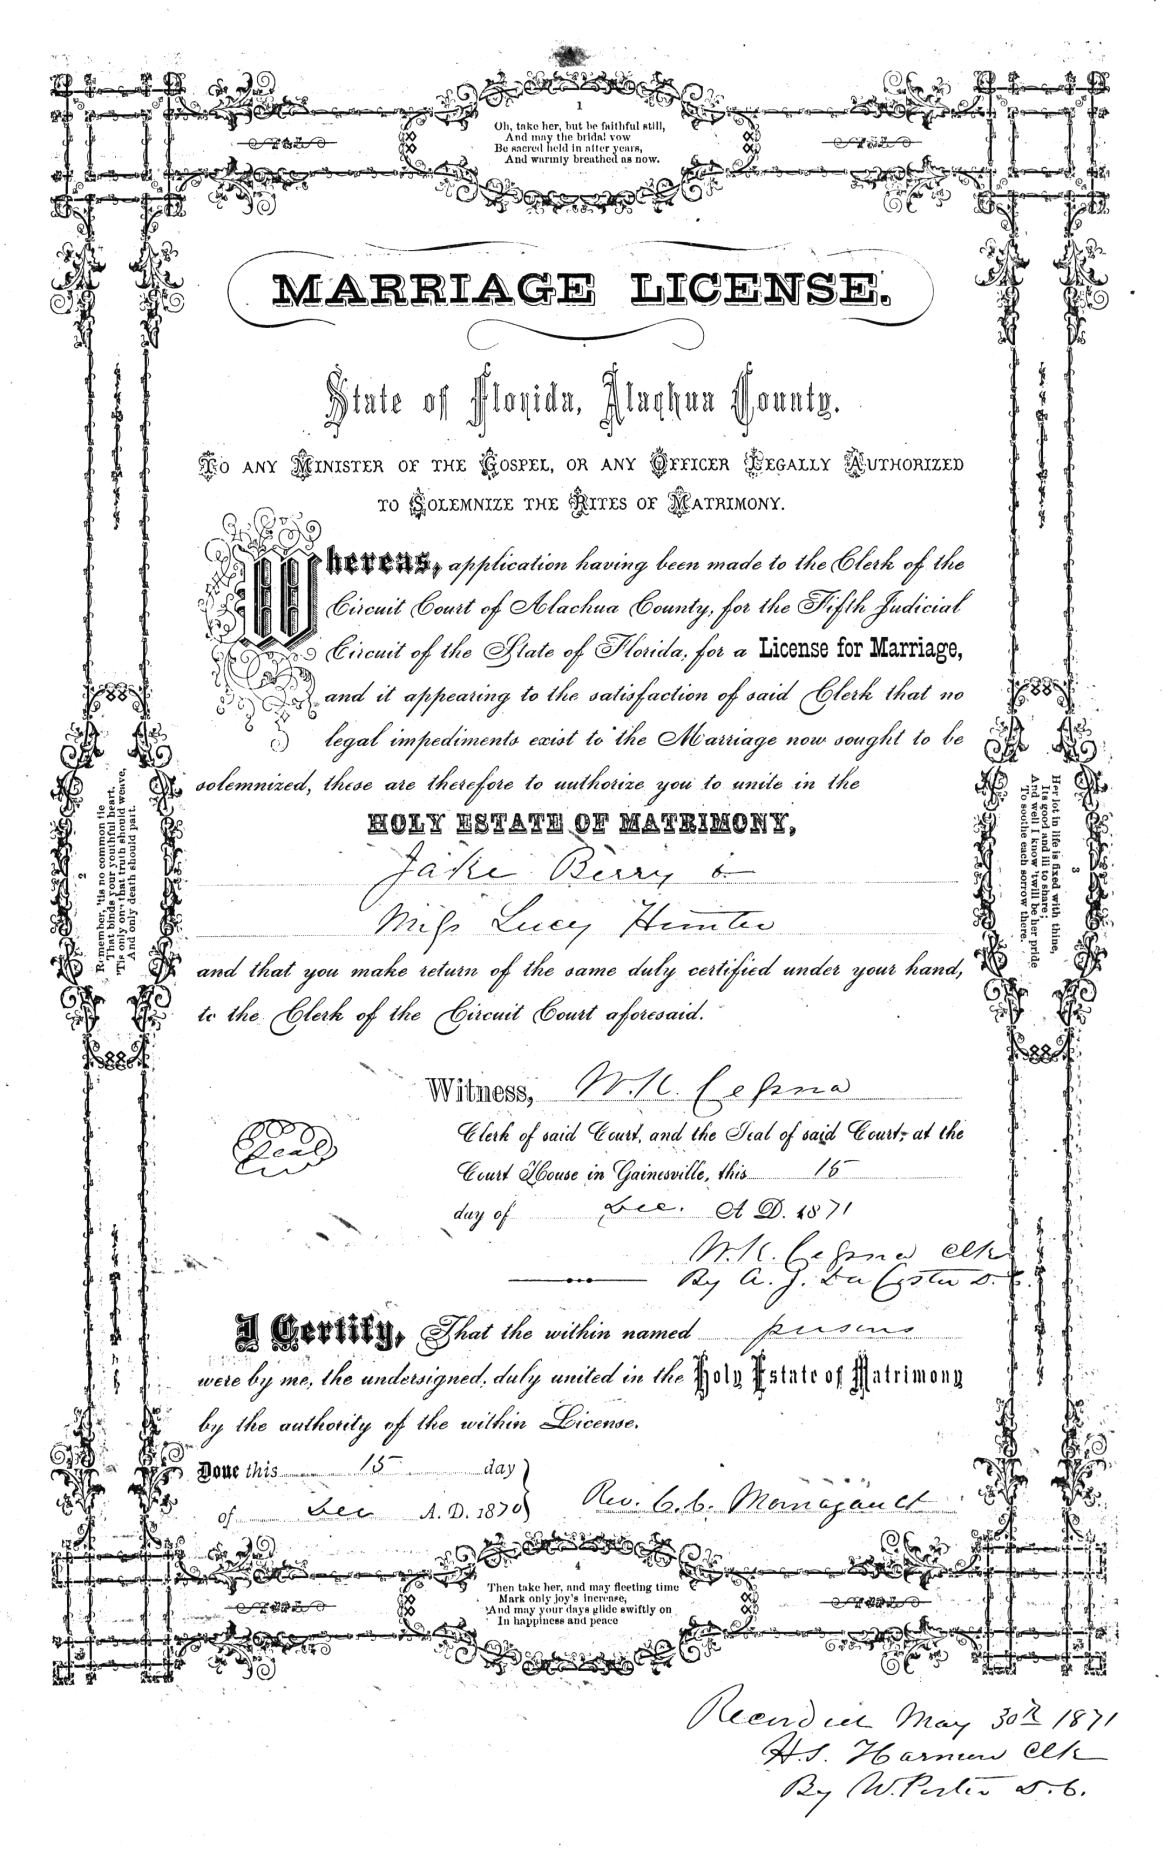 1
Oh, take her, but be faithful still,
And may the bridal vow
Be sacred held in after years,
And warmly breathed as now.
MARRIAGE LICENSE.
State of Florida, Alachua County.
To any Minister of the Gospel, or any Officer Legally Authorized
to Solemnize the Rites of Matrimony.
Whereas, application having been made to the Clerk of the
Circuit Court of Alachua County, for the Fifth Judicial
Circuit of the State of Florida, for a License for Marriage,
and it appearing to the satisfaction of said Clerk that no
legal impediments exist to the Marriage now sought to be
solemnized, these are therefore to authorize you to unite in the
HOLY ESTATE OF MATRIMONY,
Jake Berry &
Miss Lucy Hunter
and that you make return of the same duly certified under your hand,
to the Clerk of the Circuit Court aforesaid.
Witness, W. K. Cessna
Clerk of said Court, and the Seal of said Court, at the
Court House in Gainesville, this 15
day of Dec. A D. 1871
Seal
W. K. Cessna Clk
By A. J. Da Costa D. C.
I Certify, That the within named persons
were by me, the undersigned, duly united in the Holy Estate of Matrimony
by the authority of the within License.
Done this 15 day
of Dec A. D. 1870
Rev. C. C.
2
Remember, 'tis no common tie
That binds your youthful heart,
'Tis only one that truth should weave,
And only death should part.
3
Her lot in life is fixed with thine,
Its good and ill to share;
And well I know 'twill be her pride
To soothe each sorrow there.
4
Then take her, and may fleeting time
Mark only joy's increase,
And may your days glide swiftly on
In happiness and peace
Recorded May 30th 1871
H. S. Harmon Clk
By W. Porter D. C.